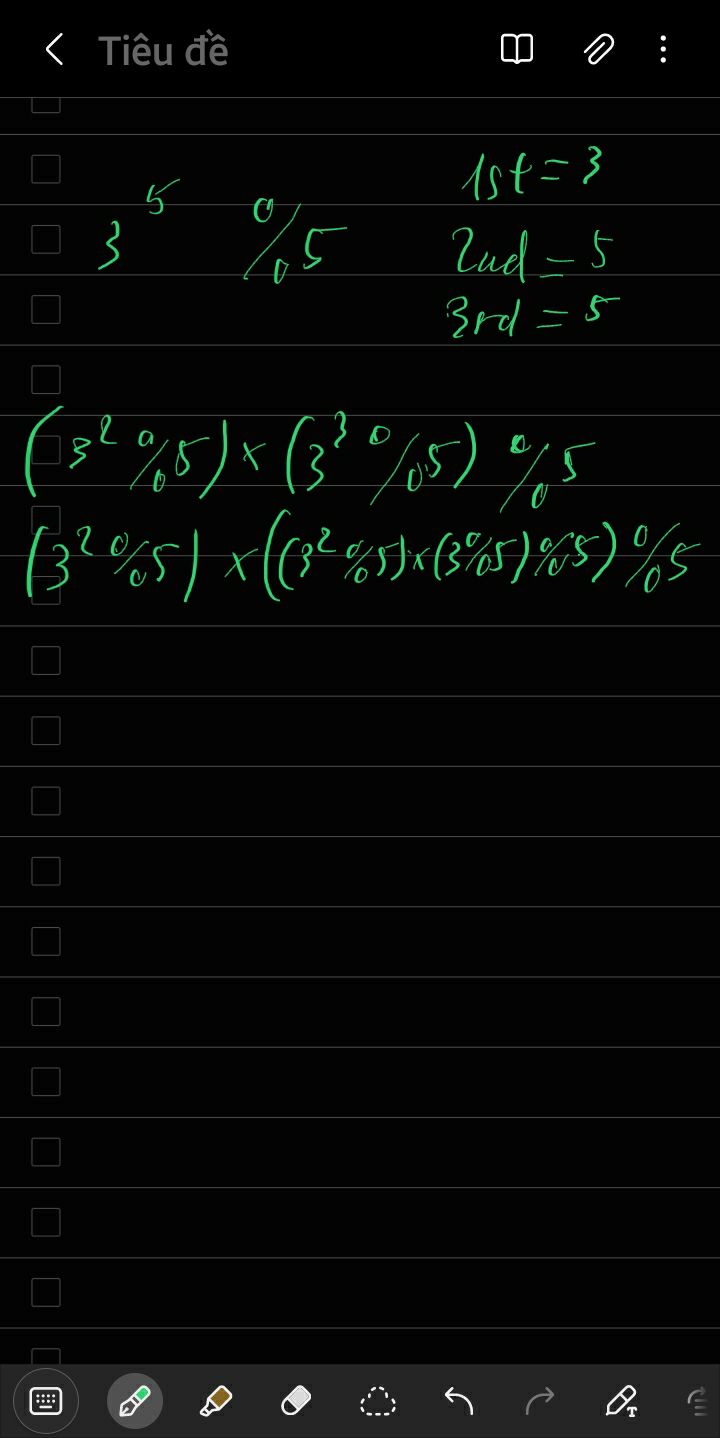 Tiêu đề
1st = 3
3^5 % 5
2nd = 5
3rd = 5
(3^2 % 5) × (3^3 % 5) % 5
(3^2 % 5) × ((3^2 % 5) × (3 % 5) % 5) % 5